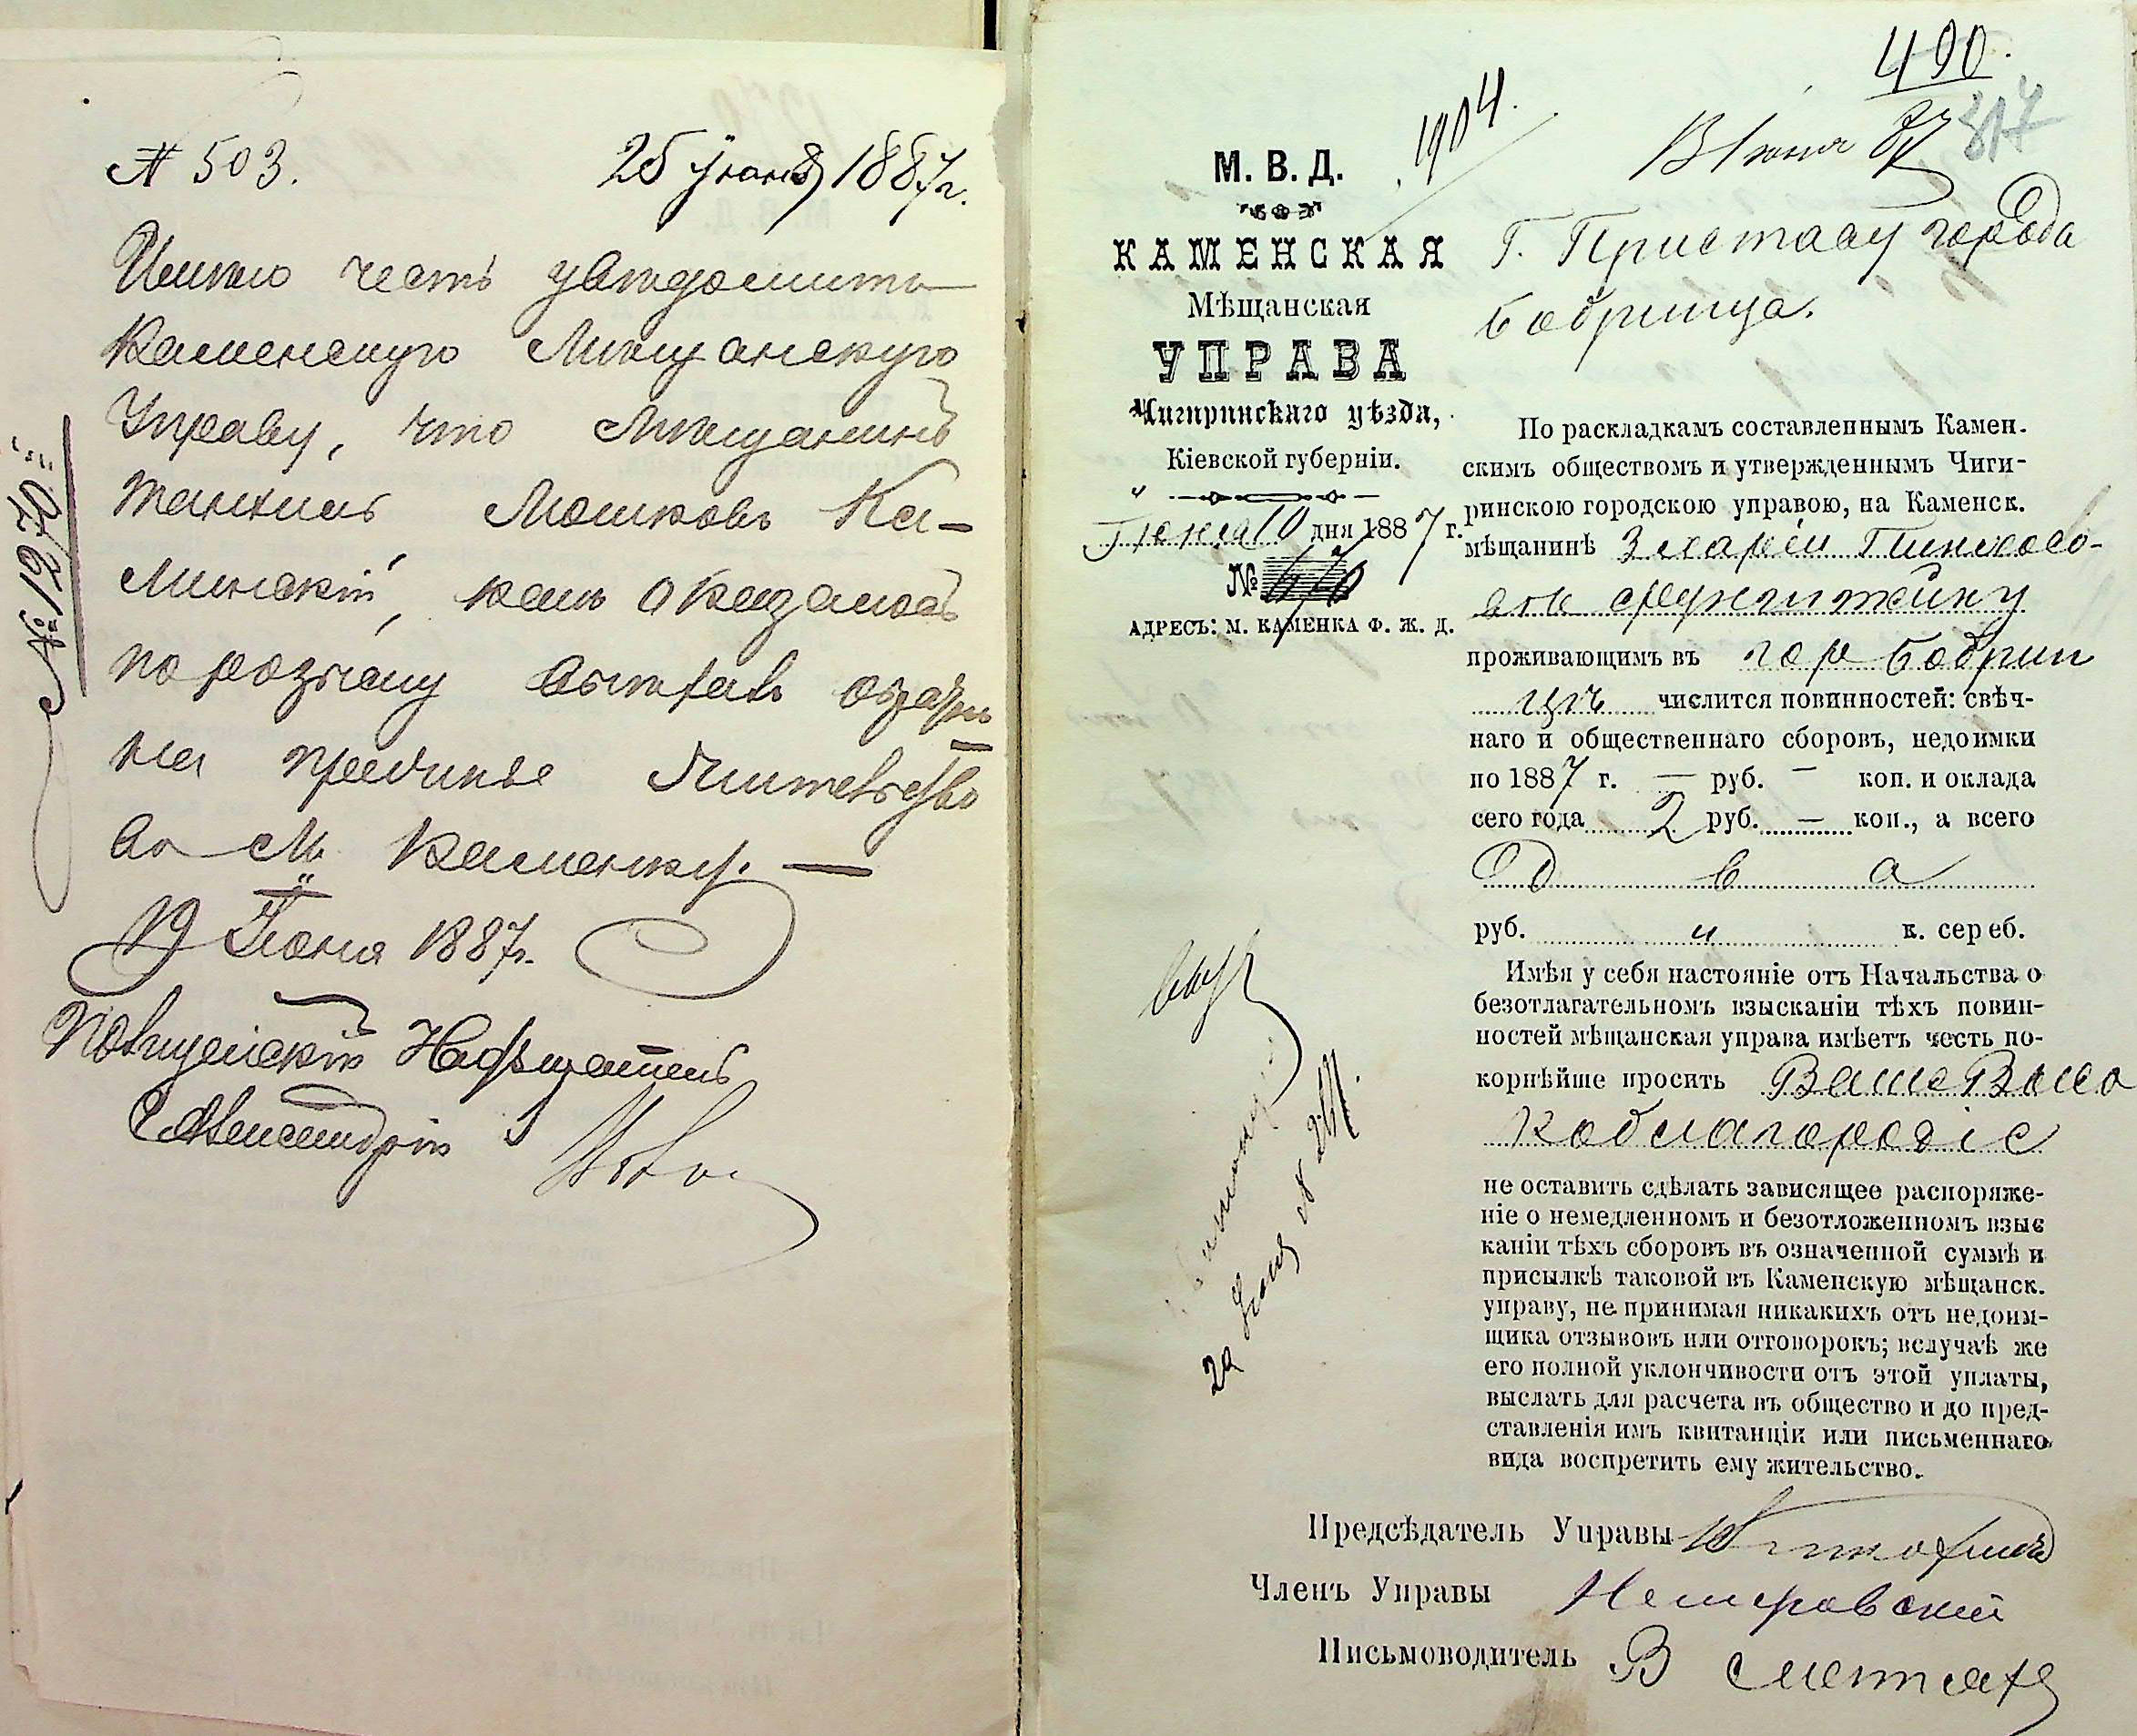 № 503.
25 Іюня 1887 г.
Имѣю честь увѣдомить
Каменскую Мѣщанскую
Управу, что Мѣщанинъ
Мошковъ Ка-
минскій, какъ оказалось
по розыску выѣхалъ обратно
на прежнѣе жительство
въ М. Каменку. —
19 Іюня 1887 г.
Полицейскій Надзиратель
№ 1270
490.
317
1904.
13 Іюня 87
М. В. Д.
КАМЕНСКАЯ
Мѣщанская
УПРАВА
Чигиринскаго уѣзда,
Кіевской губерніи.
Іюня 10 дня 1887 г.
№ 676
АДРЕСЪ: М. КАМЕНКА Ф. Ж. Д.
Г. Приставу города
Бобринца.
По раскладкамъ составленнымъ Камен-
скимъ обществомъ и утвержденнымъ Чиги-
ринскою городскою управою, на Каменск.
мѣщанинѣ
проживающимъ въ гор Бобрин
цѣ числится повинностей: свѣч-
наго и общественнаго сборовъ, недоимки
по 1887 г. — руб. — коп. и оклада
сего года 2 руб. — коп., а всего
Два
руб. и к. сереб.
Имѣя у себя настояніе отъ Начальства о
безотлагательномъ взысканіи тѣхъ повин-
ностей мѣщанская управа имѣетъ честь по-
корнѣйше просить Ваше Высо
коблагородіе
не оставить сдѣлать зависящее распоряже-
ніе о немедленномъ и безотложенномъ взыс
каніи тѣхъ сборовъ въ означенной суммѣ и
присылкѣ таковой въ Каменскую мѣщанск.
управу, не принимая никакихъ отъ недоим-
щика отзывовъ или отговорокъ; вслучаѣ же
его полной уклончивости отъ этой уплаты,
выслать для расчета въ общество и до пред-
ставленія имъ квитанціи или письменнаго
вида воспретить ему жительство.
Предсѣдатель Управы
Членъ Управы Немировский
Письмоводитель В